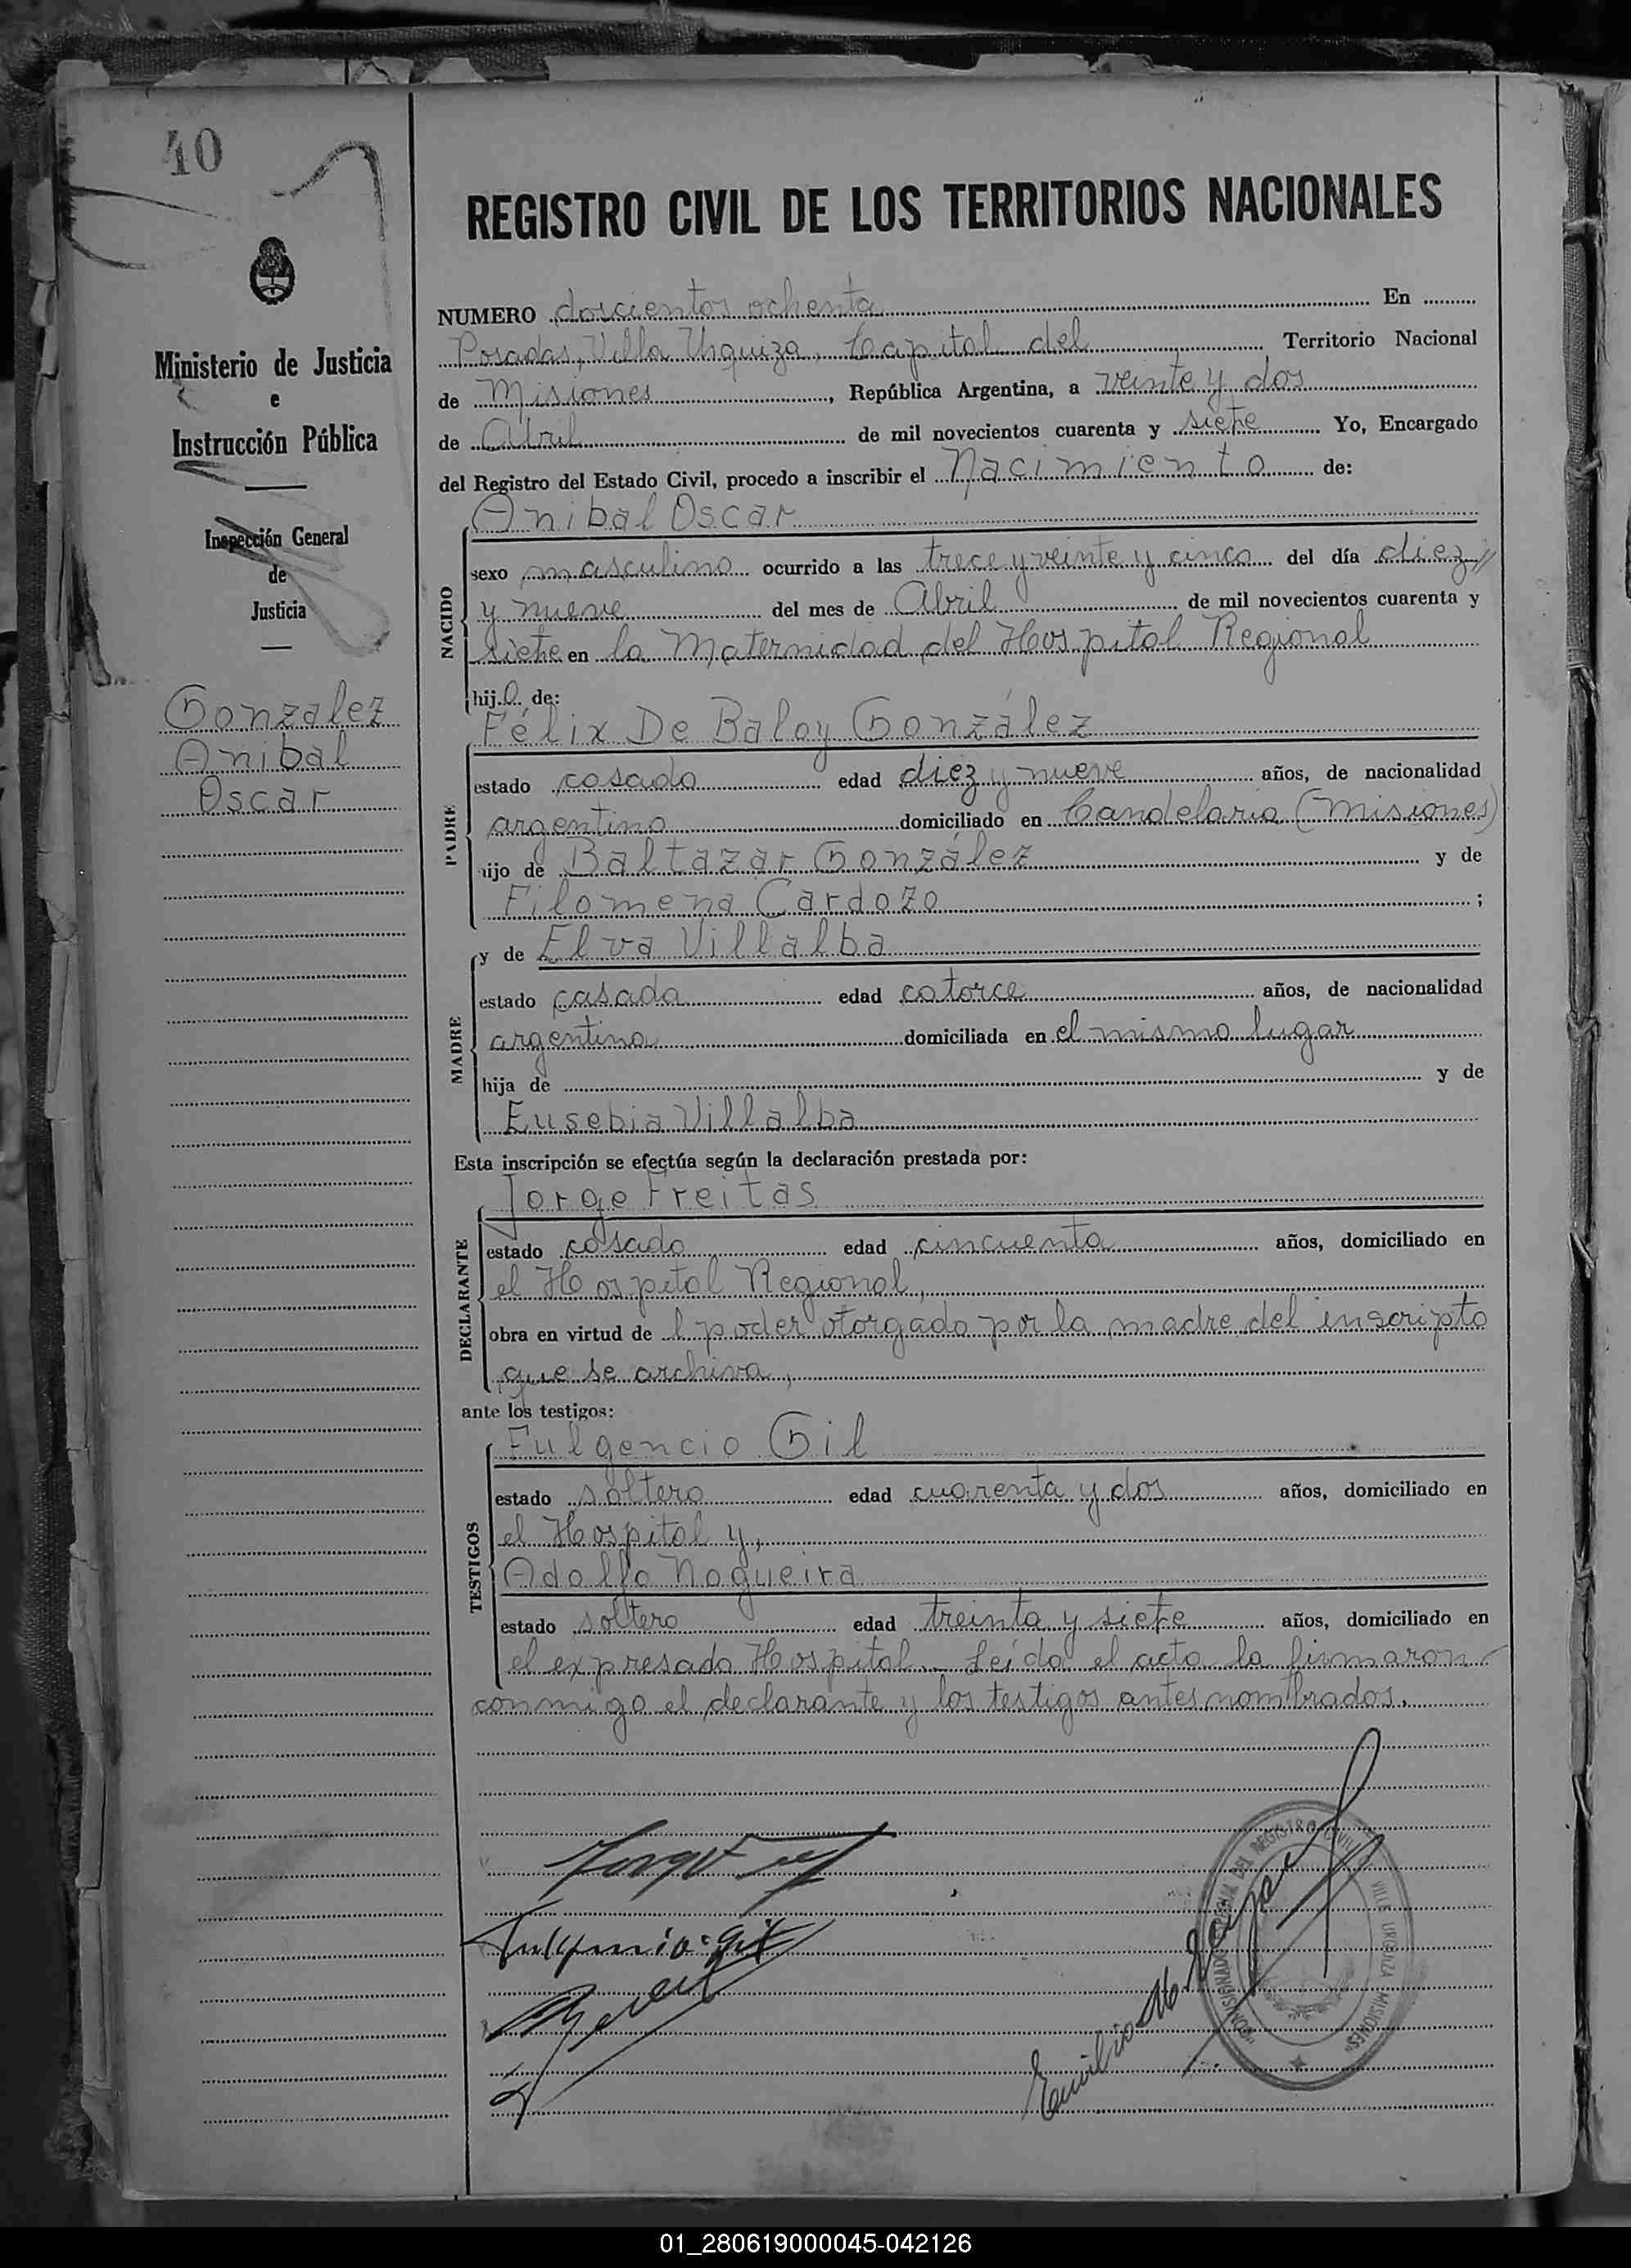 40
Ministerio de Justicia
e
Instrucción Pública
Inspección General
de
Justicia
Gonzalez
Anibal
Oscar
REGISTRO CIVIL DE LOS TERRITORIOS NACIONALES
NUMERO doscientos ochenta En
Posadas, Villa Urquiza, Capital del Territorio Nacional
de Misiones, República Argentina, a veinte y dos
de Abril de mil novecientos cuarenta y siete Yo, Encargado
del Registro del Estado Civil, procedo a inscribir el Nacimiento de:
Anibal Oscar
NACIDO
sexo masculino ocurrido a las trece y veinte y cinco del día diez
y nueve del mes de Abril de mil novecientos cuarenta y
siete en la Maternidad del Hospital Regional
hijo de:
Félix De Baloy González
PADRE
estado casado edad diez y nueve años, de nacionalidad
argentino domiciliado en Candelaria (Misiones)
hijo de Baltazar González y de
Filomena Cardozo ;
y de Elva Villalba
MADRE
estado casada edad catorce años, de nacionalidad
argentina domiciliada en el mismo lugar
hija de y de
Eusebia Villalba
Esta inscripción se efectúa según la declaración prestada por:
Jorge Freitas
DECLARANTE
estado casado edad cincuenta años, domiciliado en
el Hospital Regional,
obra en virtud de l poder otorgado por la madre del inscripto
que se archiva,
ante los testigos:
Fulgencio Gil
TESTIGOS
estado soltero edad cuarenta y dos años, domiciliado en
el Hospital y,
Adolfo Nogueira
estado soltero edad treinta y siete años, domiciliado en
el expresado Hospital. Leída el acta la firmaron
conmigo el declarante y los testigos antes nombrados.
Fulgencio Gil
Emilio
DEL REGISTRO CIVIL
VILLA URQUIZA MISIONES
01_280619000045-042126